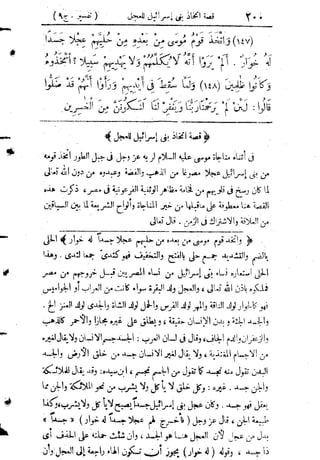 ٢٠٠ قصة اتخاذ بنى إسرائيل للعجل (تفسير . ج ٩)
(١٤٧) وَاتَّخَذَ قَوْمُ مُوسَى مِنْ بَعْدِهِ مِنْ حُلِيِّهِمْ عِجْلاً جَسَداً
لَهُ خُوَارٌ . أَلَمْ يَرَوْا أَنَّهُ لاَ يُكَلِّمُهُمْ وَلاَ يَهْدِيهِمْ سَبِيلاً ؟ اتَّخَذُوهُ
وَكَانُوا ظَلِمِينَ (١٤٨) وَلَمَّا سُقِطَ فِي أَيْدِيهِمْ وَرَأَوْا أَنَّهُمْ قَدْ ضَلُّوا
قَالُوا : لَئِنْ لَمْ يَرْحَمْنَا رَبُّنَا وَيَغْفِرْ لَنَا لَنَكُونَنَّ مِنَ الْخَسِرِينَ
﴿ قصة اتخاذ بنى إسرائيل للعجل ﴾
فى أثناء مناجاة موسى عليه السلام لربه عز وجل فى جبل الطور اتخذ قومه
من بنى إسرائيل عجلا مصوغا من الذهب والفضة وعبدوه من دون الله تعالى
لما كان رسخ فى قلوبهم من فخامة مظاهر الوثنية الفرعونية فى مصر، ذكرت هذه
القصة هنا معطوفة على ماقبلها من خبر المناجاة وألواح الشريعة لما بين السياقين
من العلاقة والاشتراك فى الزمن . قال تعالى
﴿ واتخذ قوم موسى من بعده من حليهم عجلا جسداً له خوار ﴾ الحلى
بالضم والتشديد جمع حلى بالفتح والتخفيف فهو كثدى جمع لثدى . وهذا
الحلى استعاره نساء بنى إسرائيل من نساء المصريين قبيل خروجهم من مصر
فملكوه باذن الله تعالى ، والعجل ولد البقرة سواء كانت من العراب أو الجواميس
فهو كالحوار لولد الناقة والمهر لولد الفرس والحمل لولد الشاة والجدى لولد العنز الخ .
والجسد الجثة و بدن الإنسان حقيقة ، و يطلق على غيره مجازا والأحمر كالذهب
والزعفران والدم الجاف، وقال فى لسان العرب : الجسد جسم الانسان ولا يقال لغيره
من الاجسام المغتذية ، ولا يقال لغير الانسان جسد من خلق الأرض والجسد
البدن تقول منه تجسد كما تقول من الجسم تجسم ، ابن سيده: وقد يقال للملائكة
والجن جسد . غيره : وكل خلق لا يأكل ولا يشرب من نحو الملائكة والجن مما
يعقل فهو جسد . وكان عجل بنى إسرائيل جسداً يصيح لا يأكل ولا يشرب، وكذا
طبيعة الجن ، قال عز وجل ( فأخرج لهم عجلا جسداً له خوار ) « جسداً »
بدل من عجل لأن العجل هنا هو الجسد ، وان شئت حملته على الحذف أى
ذا جسد ، وقوله ( له خوار ) يجوز أن تكون الهاء راجعة إلى العجل وأن